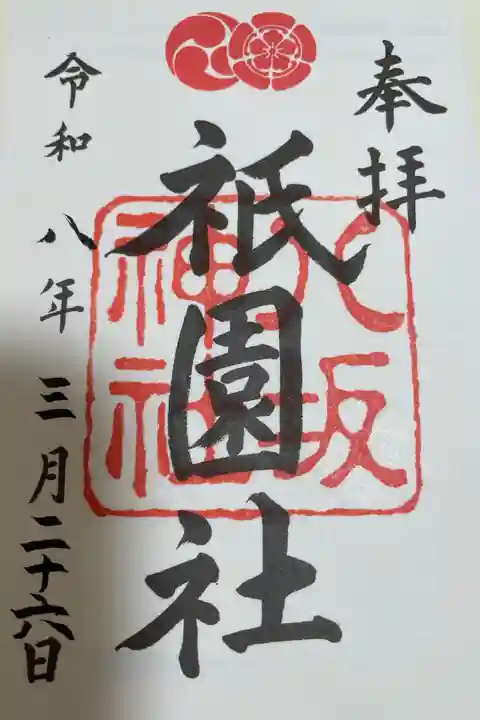 奉拝
祇園社
八坂
神社
令和八年三月二十六日